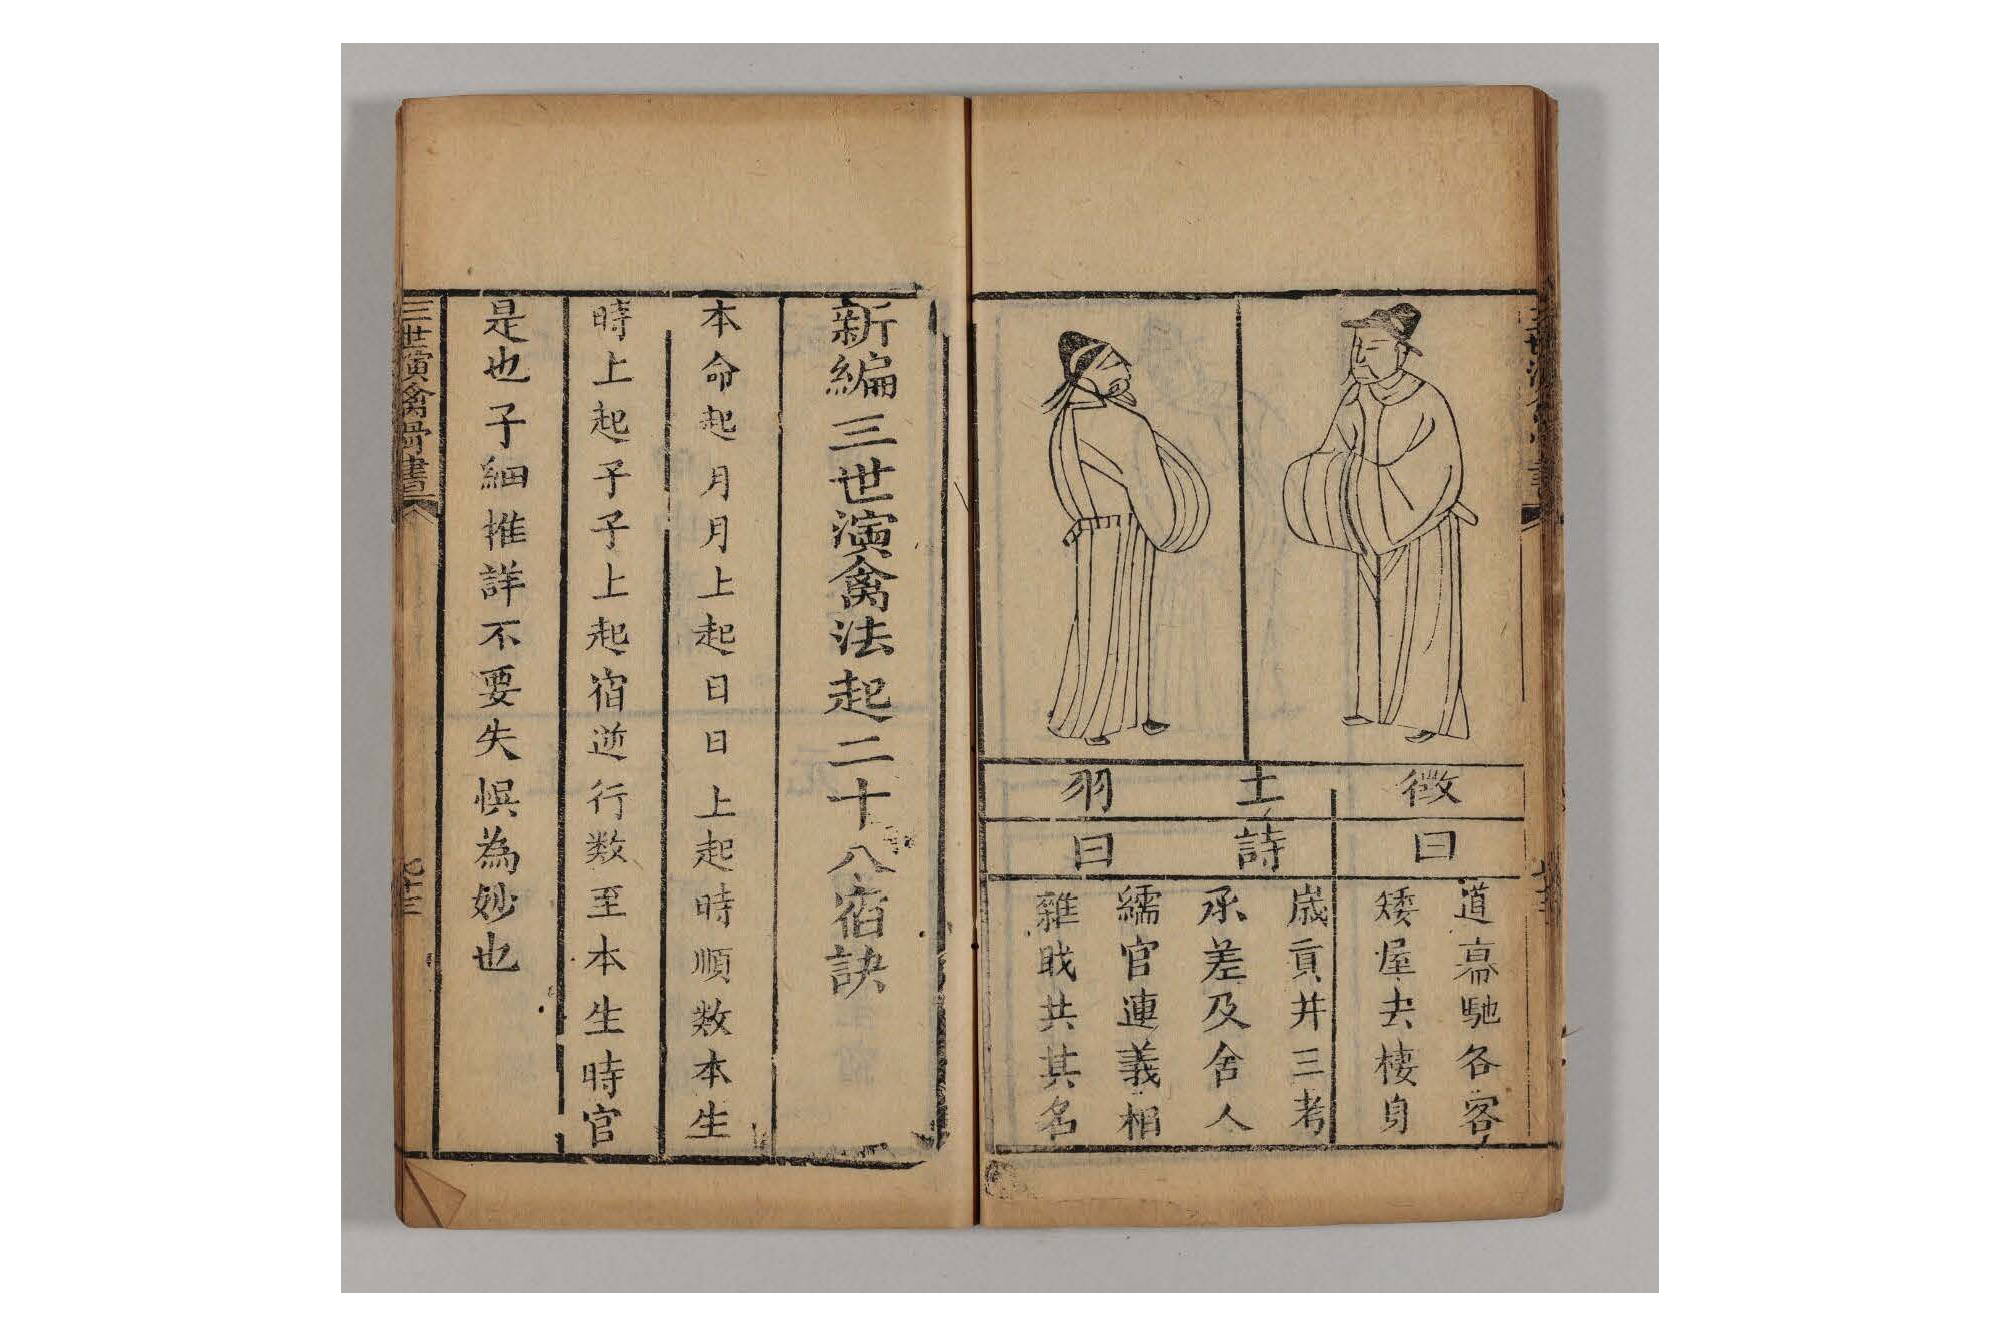 徵
土
羽
曰
詩
曰
道高馳各客
矮屋去棲身
歲貢并三考
承差及舍人
繻官連義相
雜職共其名
新編三世演禽法起二十八宿訣
本命起月月上起日日上起時順数本生
時上起子子上起宿逆行数至本生時官
是也子細推詳不要失悞為妙也
三世演禽骨書
九十三